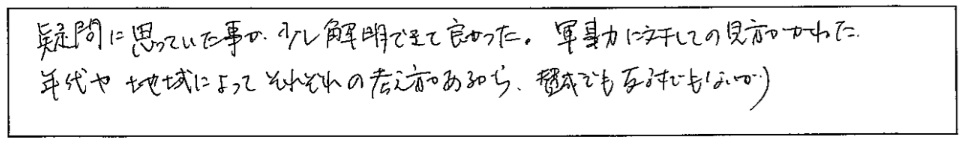 疑問に思っていた事が、少し解明できて良かった。軍事力に対しての見方がかわった。
年代や地域によってそれぞれの考え方があるから、賛成でも反対でもないが